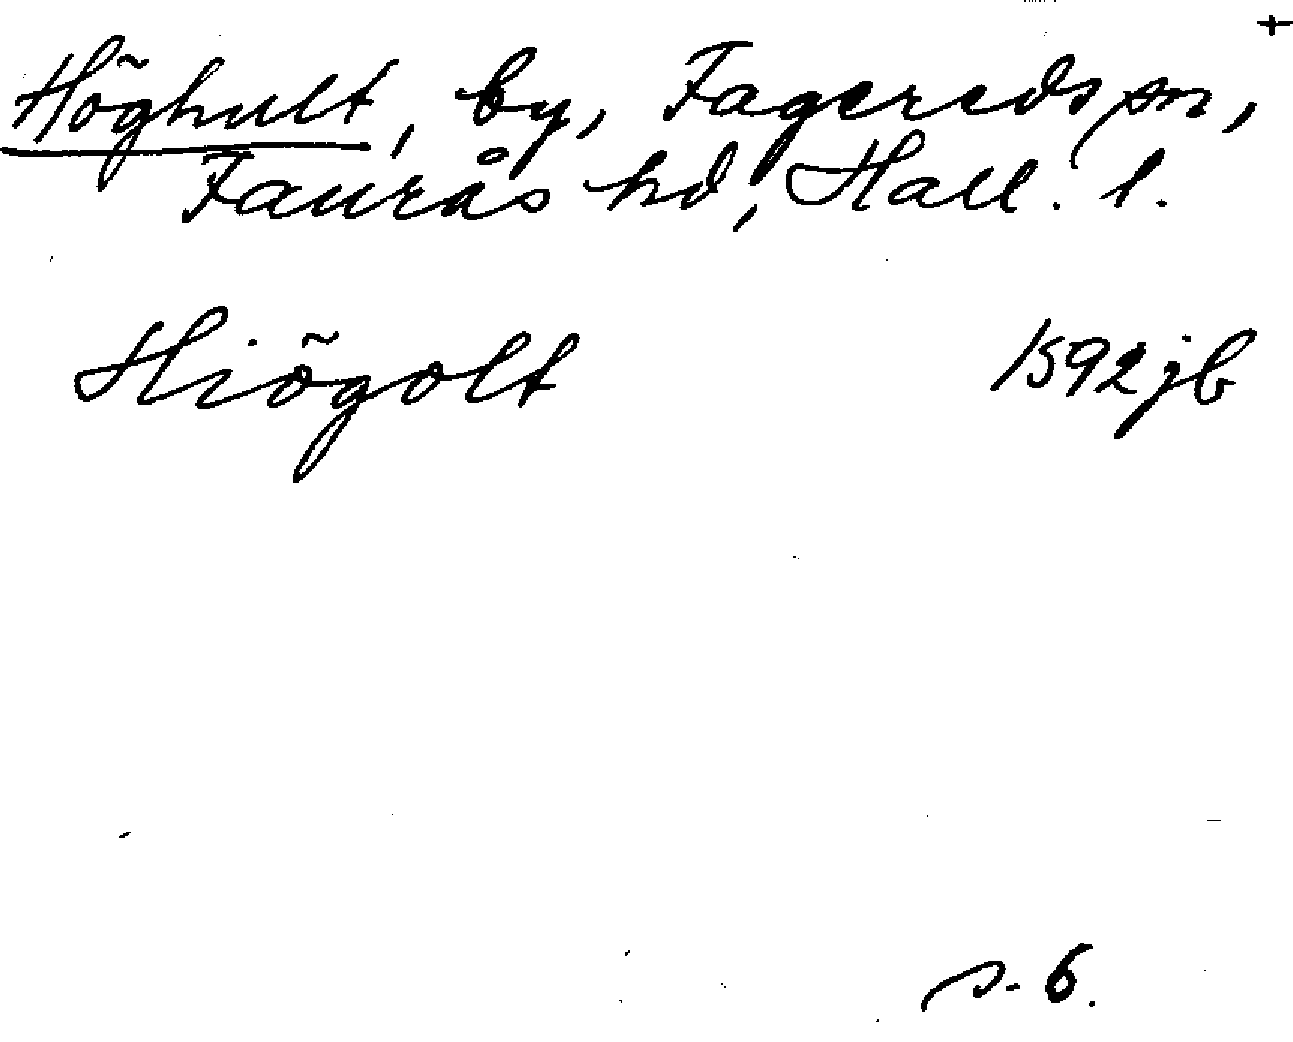 +
Höghult, by, Fagereds sn,
Faurås hd, Hall. l.
Hiögolt 1592 jb
s. 6.